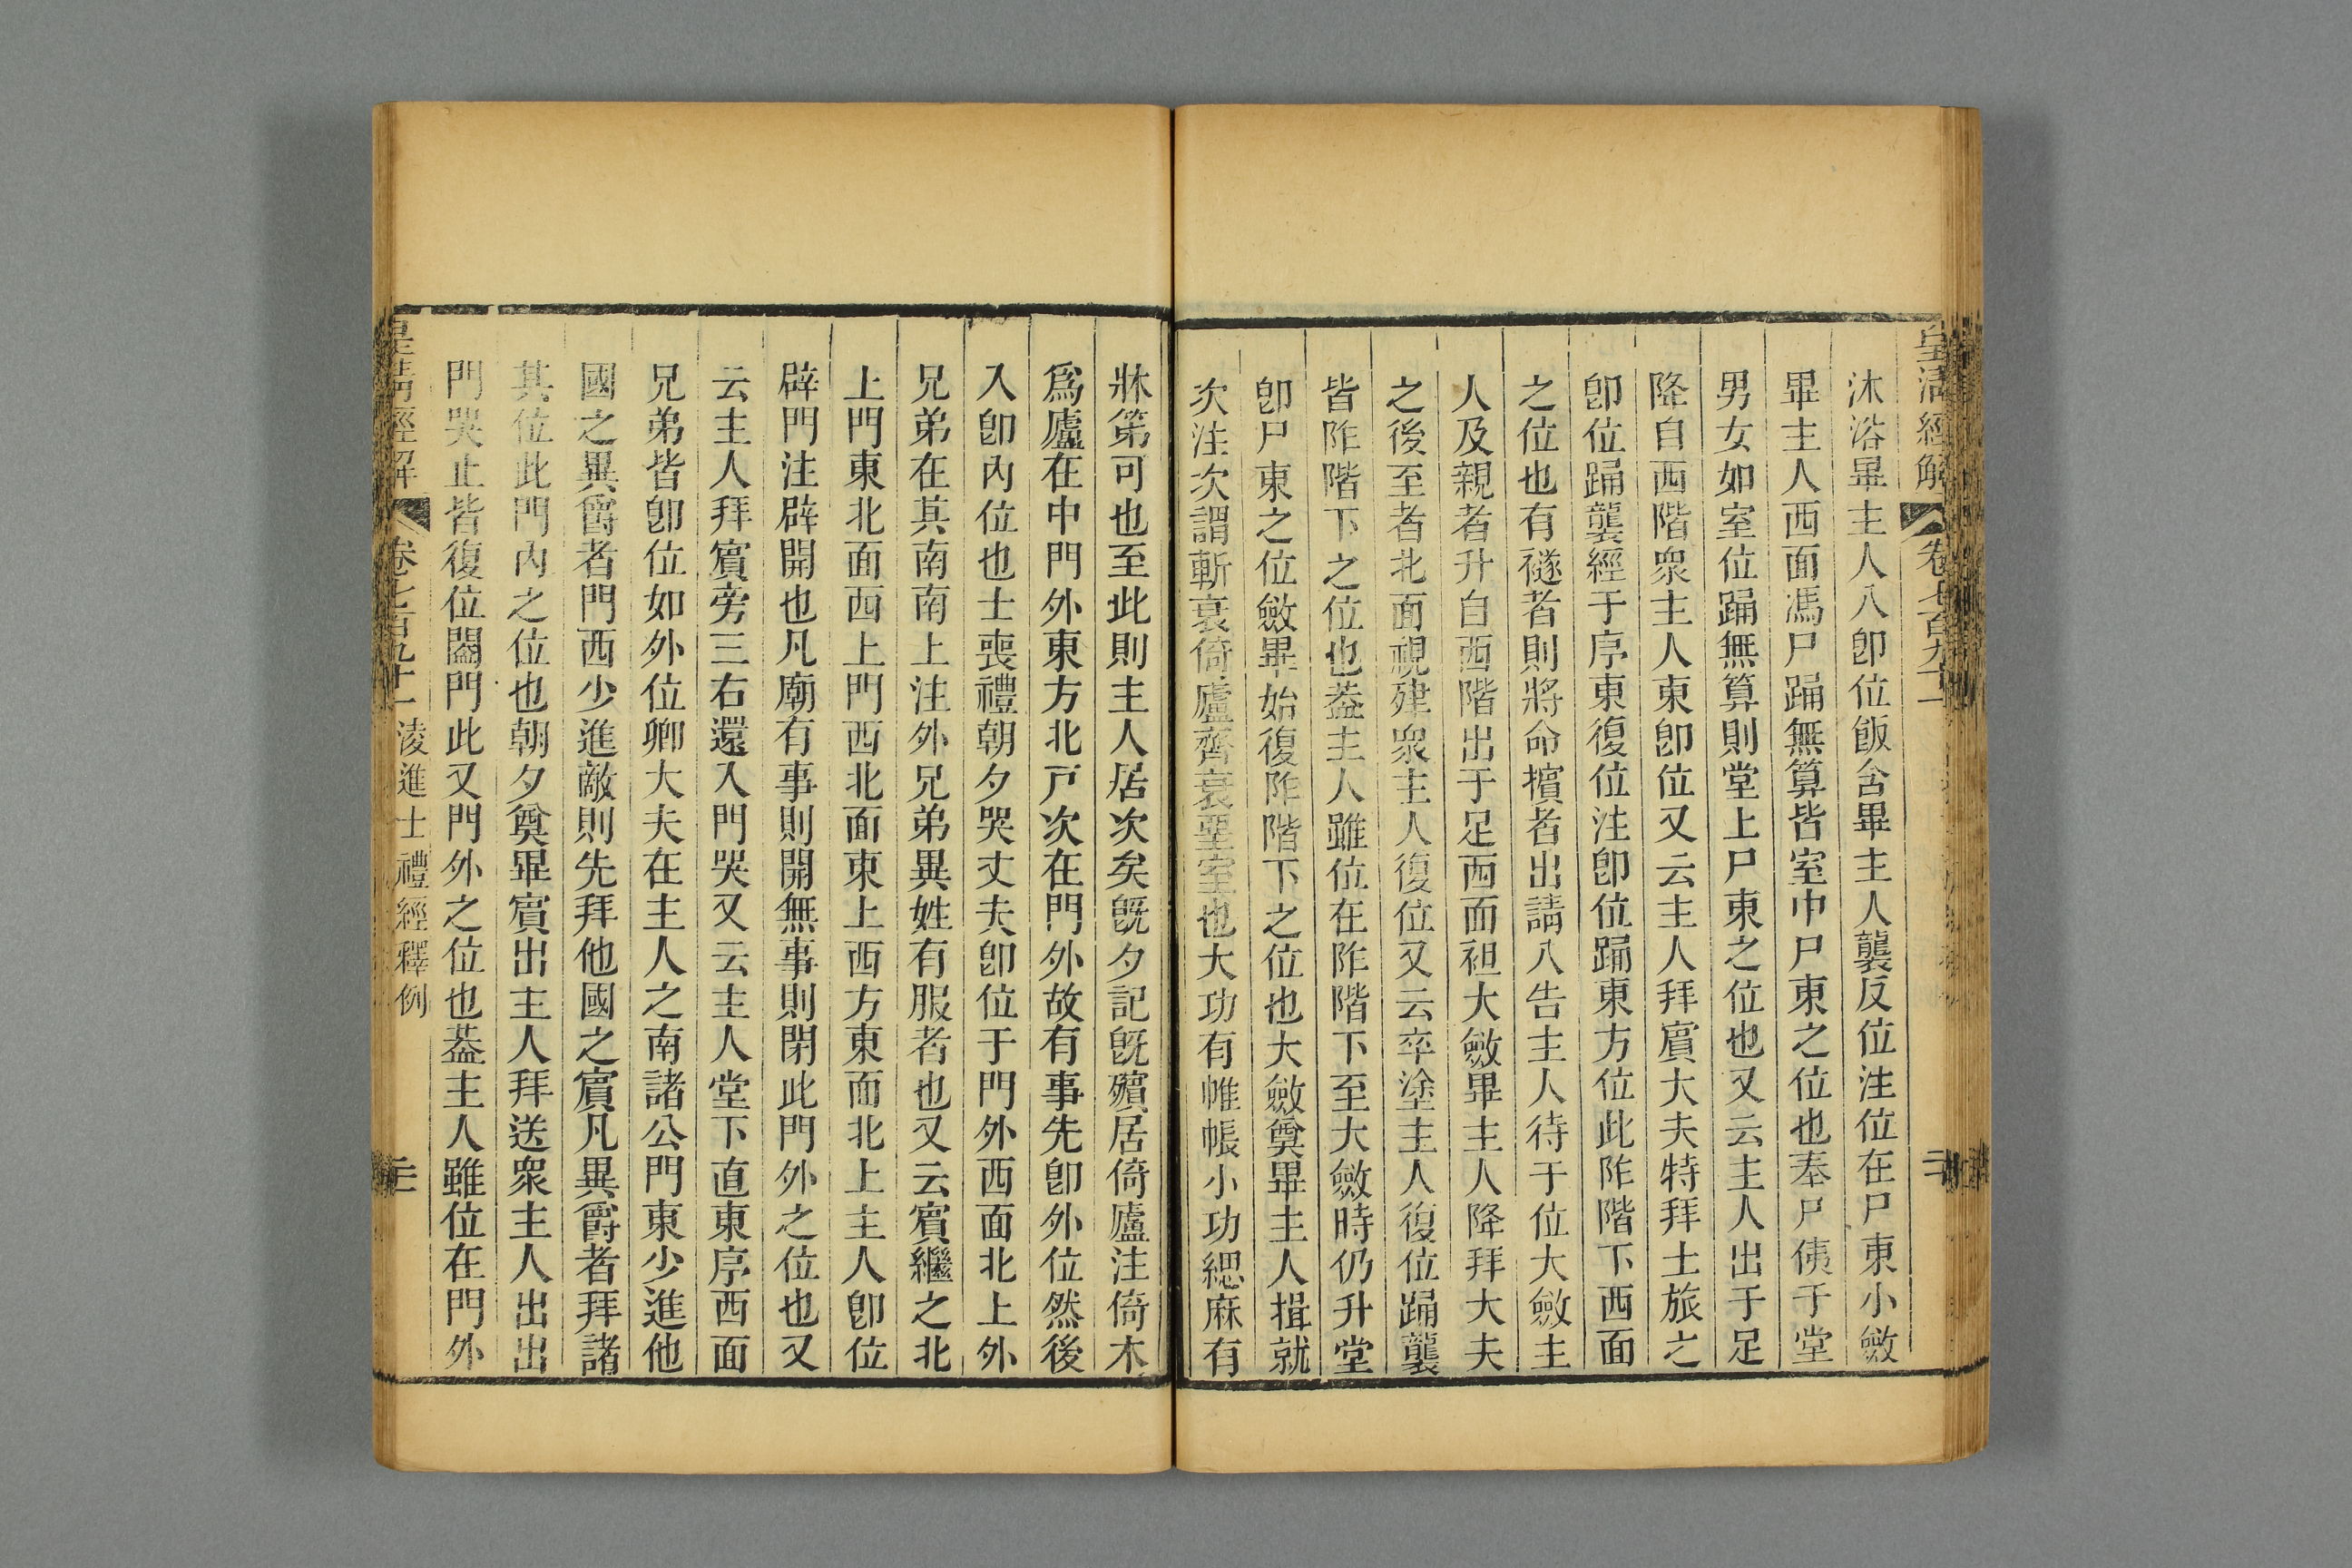 皇清經解
卷七百九十一
沐浴畢主人入卽位飯含畢主人襲反位注位在尸東小斂
畢主人西面馮尸踊無算皆室中尸東之位也奉尸侇于堂
男女如室位踊無算則堂上尸東之位也又云主人出于足
降自西階衆主人東卽位又云主人拜賔大夫特拜士旅之
卽位踊襲絰于序東復位注卽位踊東方位此阼階下西面
之位也有襚者則將命擯者出請入告主人待于位大斂主
人及親者升自西階出于足西面袒大斂畢主人降拜大夫
之後至者北面視肂衆主人復位又云卒塗主人復位踊襲
皆阼階下之位也葢主人雖位在阼階下至大斂時仍升堂
卽尸東之位斂畢始復阼階下之位也大斂奠畢主人揖就
次注次謂斬衰倚廬齊衰堊室也大功有帷帳小功緦麻有
牀第可也至此則主人居次矣旣夕記旣殯居倚廬注倚木
爲廬在中門外東方北戸次在門外故有事先卽外位然後
入卽內位也士喪禮朝夕哭丈夫卽位于門外西面北上外
兄弟在其南南上注外兄弟異姓有服者也又云賔繼之北
上門東北面西上門西北面東上西方東面北上主人卽位
辟門注辟開也凡廟有事則開無事則閉此門外之位也又
云主人拜賔旁三右還入門哭又云主人堂下直東序西面
兄弟皆卽位如外位卿大夫在主人之南諸公門東少進他
國之異爵者門西少進敵則先拜他國之賔凡異爵者拜諸
其位此門內之位也朝夕奠畢賔出主人拜送衆主人出出
門哭止皆復位闔門此又門外之位也葢主人雖位在門外
皇清經解
卷七百九十一
凌進士禮經釋例